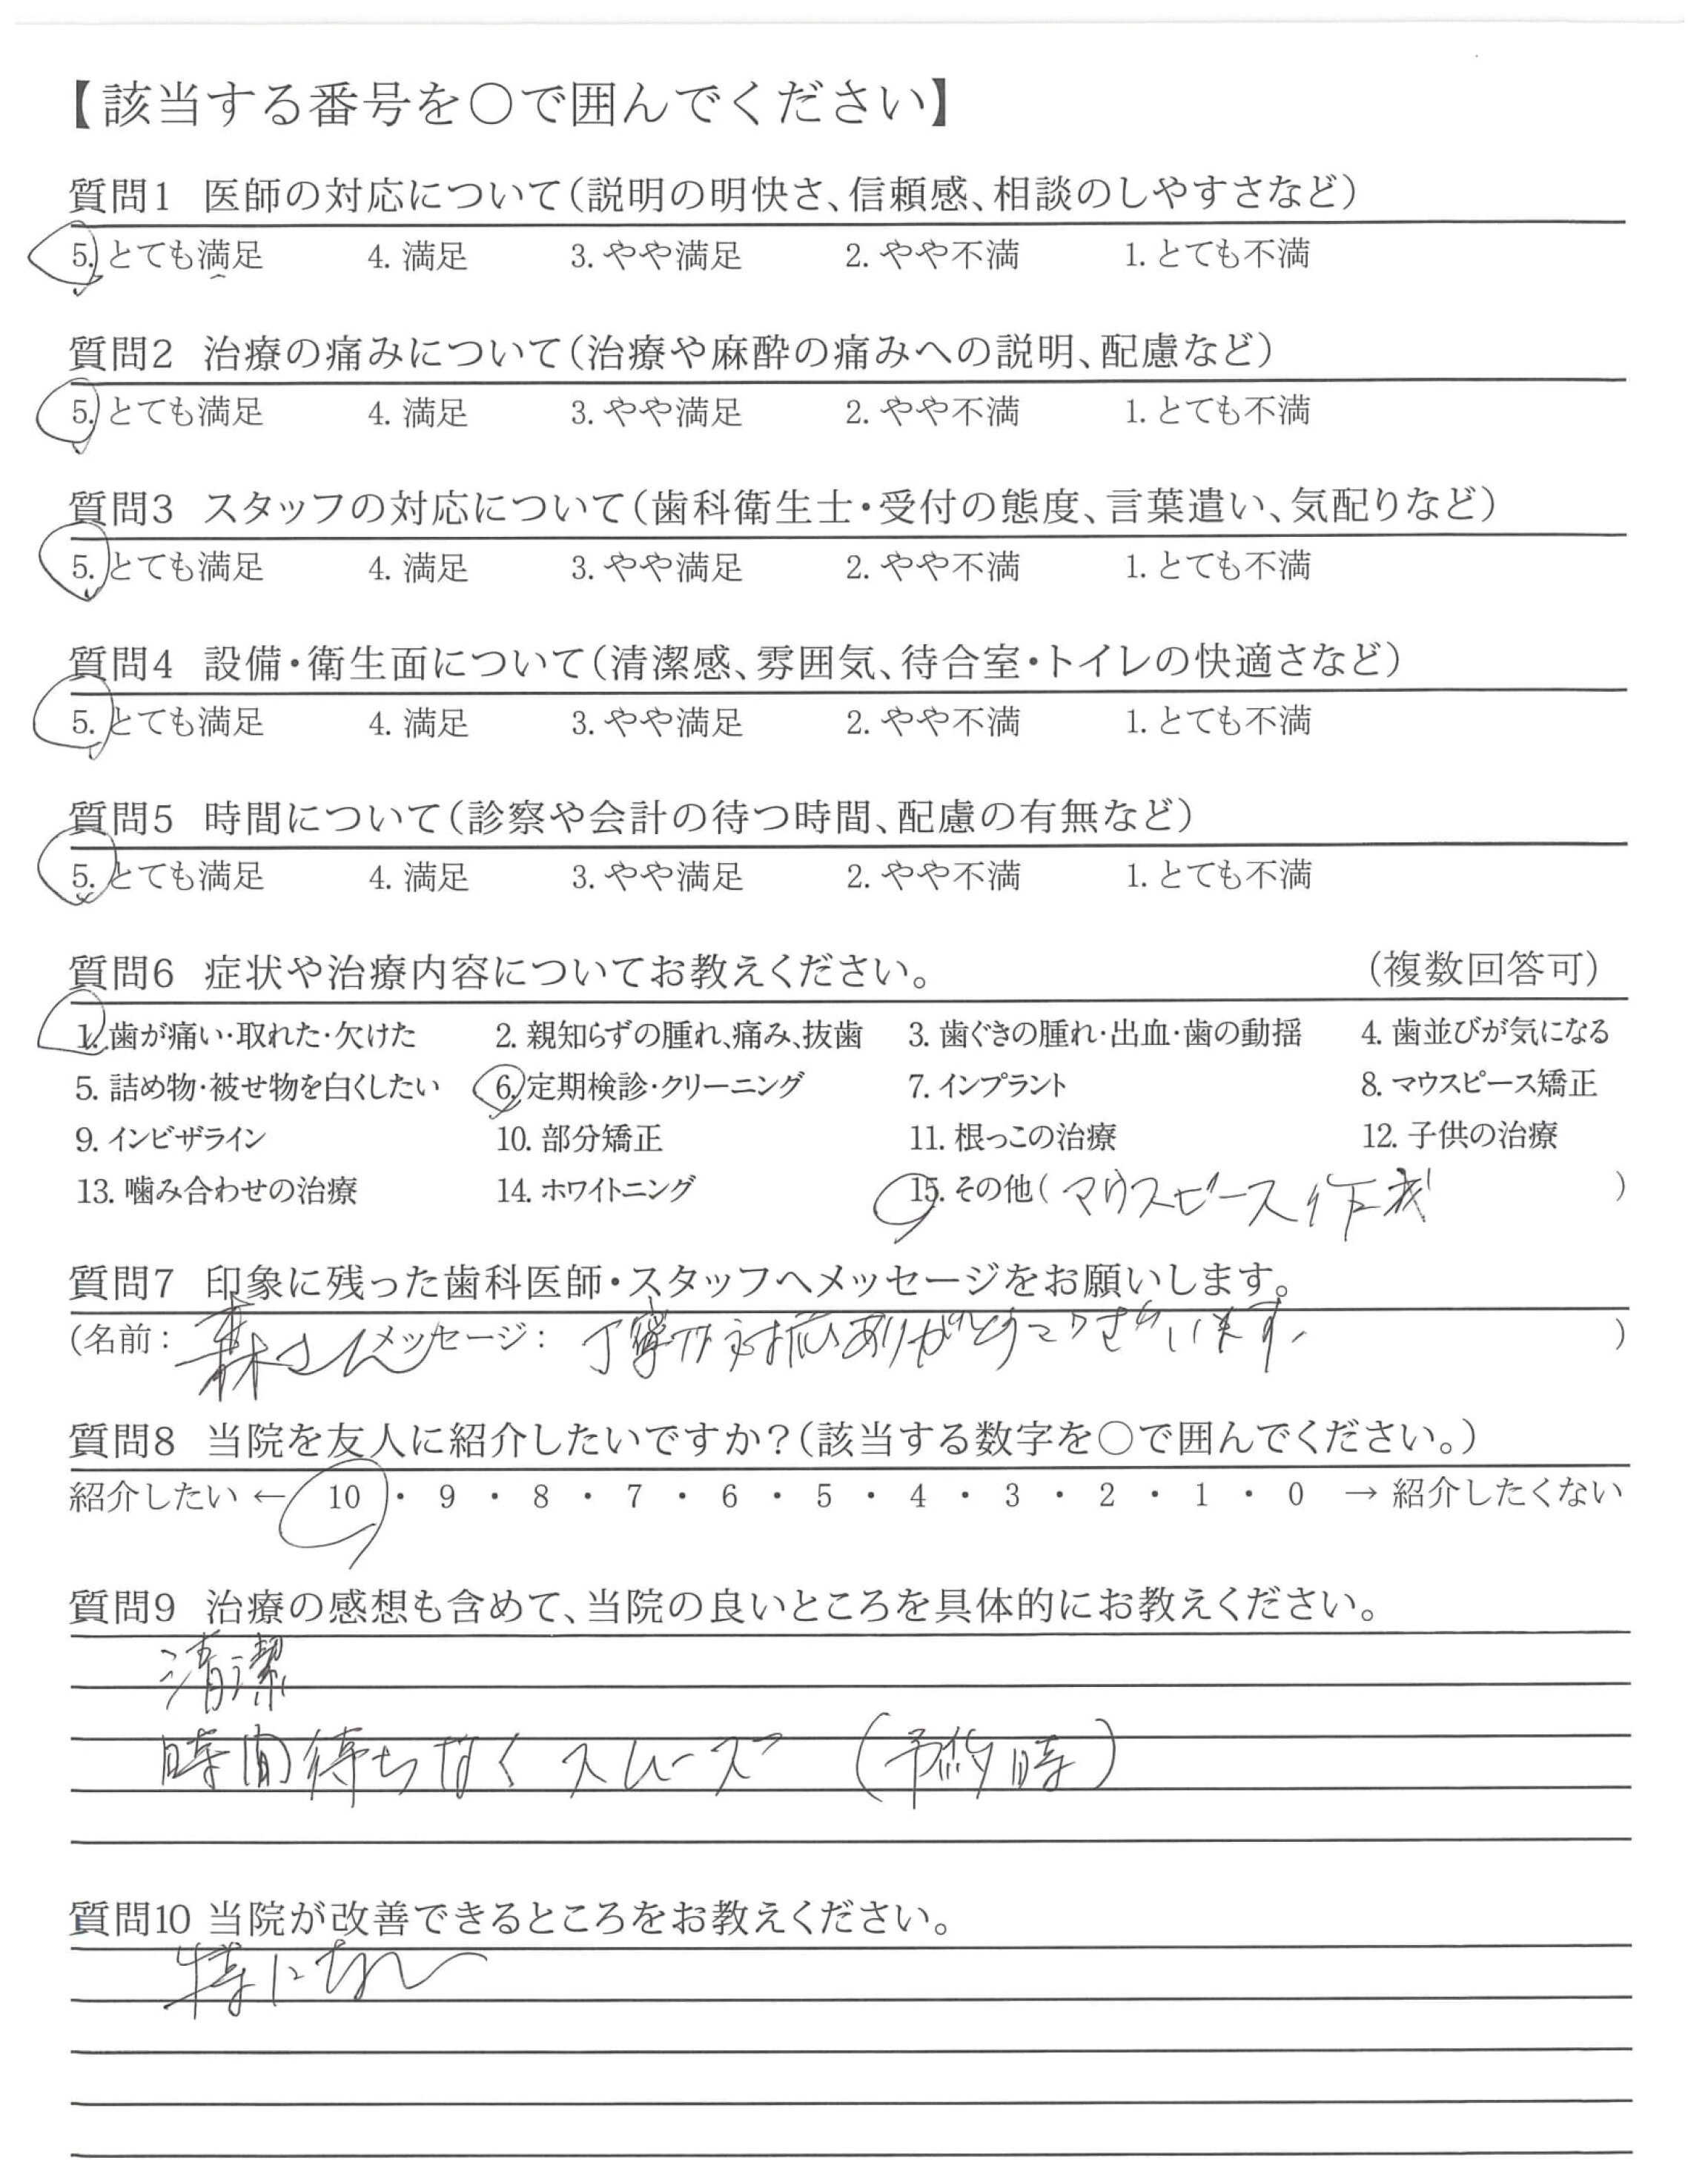 【該当する番号を〇で囲んでください】
質問1 医師の対応について(説明の明快さ、信頼感、相談のしやすさなど)
5. とても満足 4. 満足 3. やや満足 2. やや不満 1. とても不満
質問2 治療の痛みについて(治療や麻酔の痛みへの説明、配慮など)
5. とても満足 4. 満足 3. やや満足 2. やや不満 1. とても不満
質問3 スタッフの対応について(歯科衛生士・受付の態度、言葉遣い、気配りなど)
5. とても満足 4. 満足 3. やや満足 2. やや不満 1. とても不満
質問4 設備・衛生面について(清潔感、雰囲気、待合室・トイレの快適さなど)
5. とても満足 4. 満足 3. やや満足 2. やや不満 1. とても不満
質問5 時間について(診察や会計の待つ時間、配慮の有無など)
5. とても満足 4. 満足 3. やや満足 2. やや不満 1. とても不満
質問6 症状や治療内容についてお教えください。 (複数回答可)
1. 歯が痛い・取れた・欠けた 2. 親知らずの腫れ、痛み、抜歯 3. 歯ぐきの腫れ・出血・歯の動揺 4. 歯並びが気になる
5. 詰め物・被せ物を白くしたい 6. 定期検診・クリーニング 7. インプラント 8. マウスピース矯正
9. インビザライン 10. 部分矯正 11. 根っこの治療 12. 子供の治療
13. 噛み合わせの治療 14. ホワイトニング 15. その他( マウスピース作成 )
質問7 印象に残った歯科医師・スタッフへメッセージをお願いします。
(名前: 森さん メッセージ: 丁寧な対応ありがとうございます。 )
質問8 当院を友人に紹介したいですか?(該当する数字を〇で囲んでください。)
紹介したい ← 10 ・ 9 ・ 8 ・ 7 ・ 6 ・ 5 ・ 4 ・ 3 ・ 2 ・ 1 ・ 0 → 紹介したくない
質問9 治療の感想も含めて、当院の良いところを具体的にお教えください。
清潔
時間待ちなくスムーズ (予約時)
質問10 当院が改善できるところをお教えください。
特になし